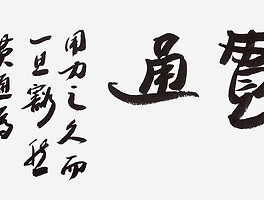 貫通
用力之久而
一旦豁然
貫通焉